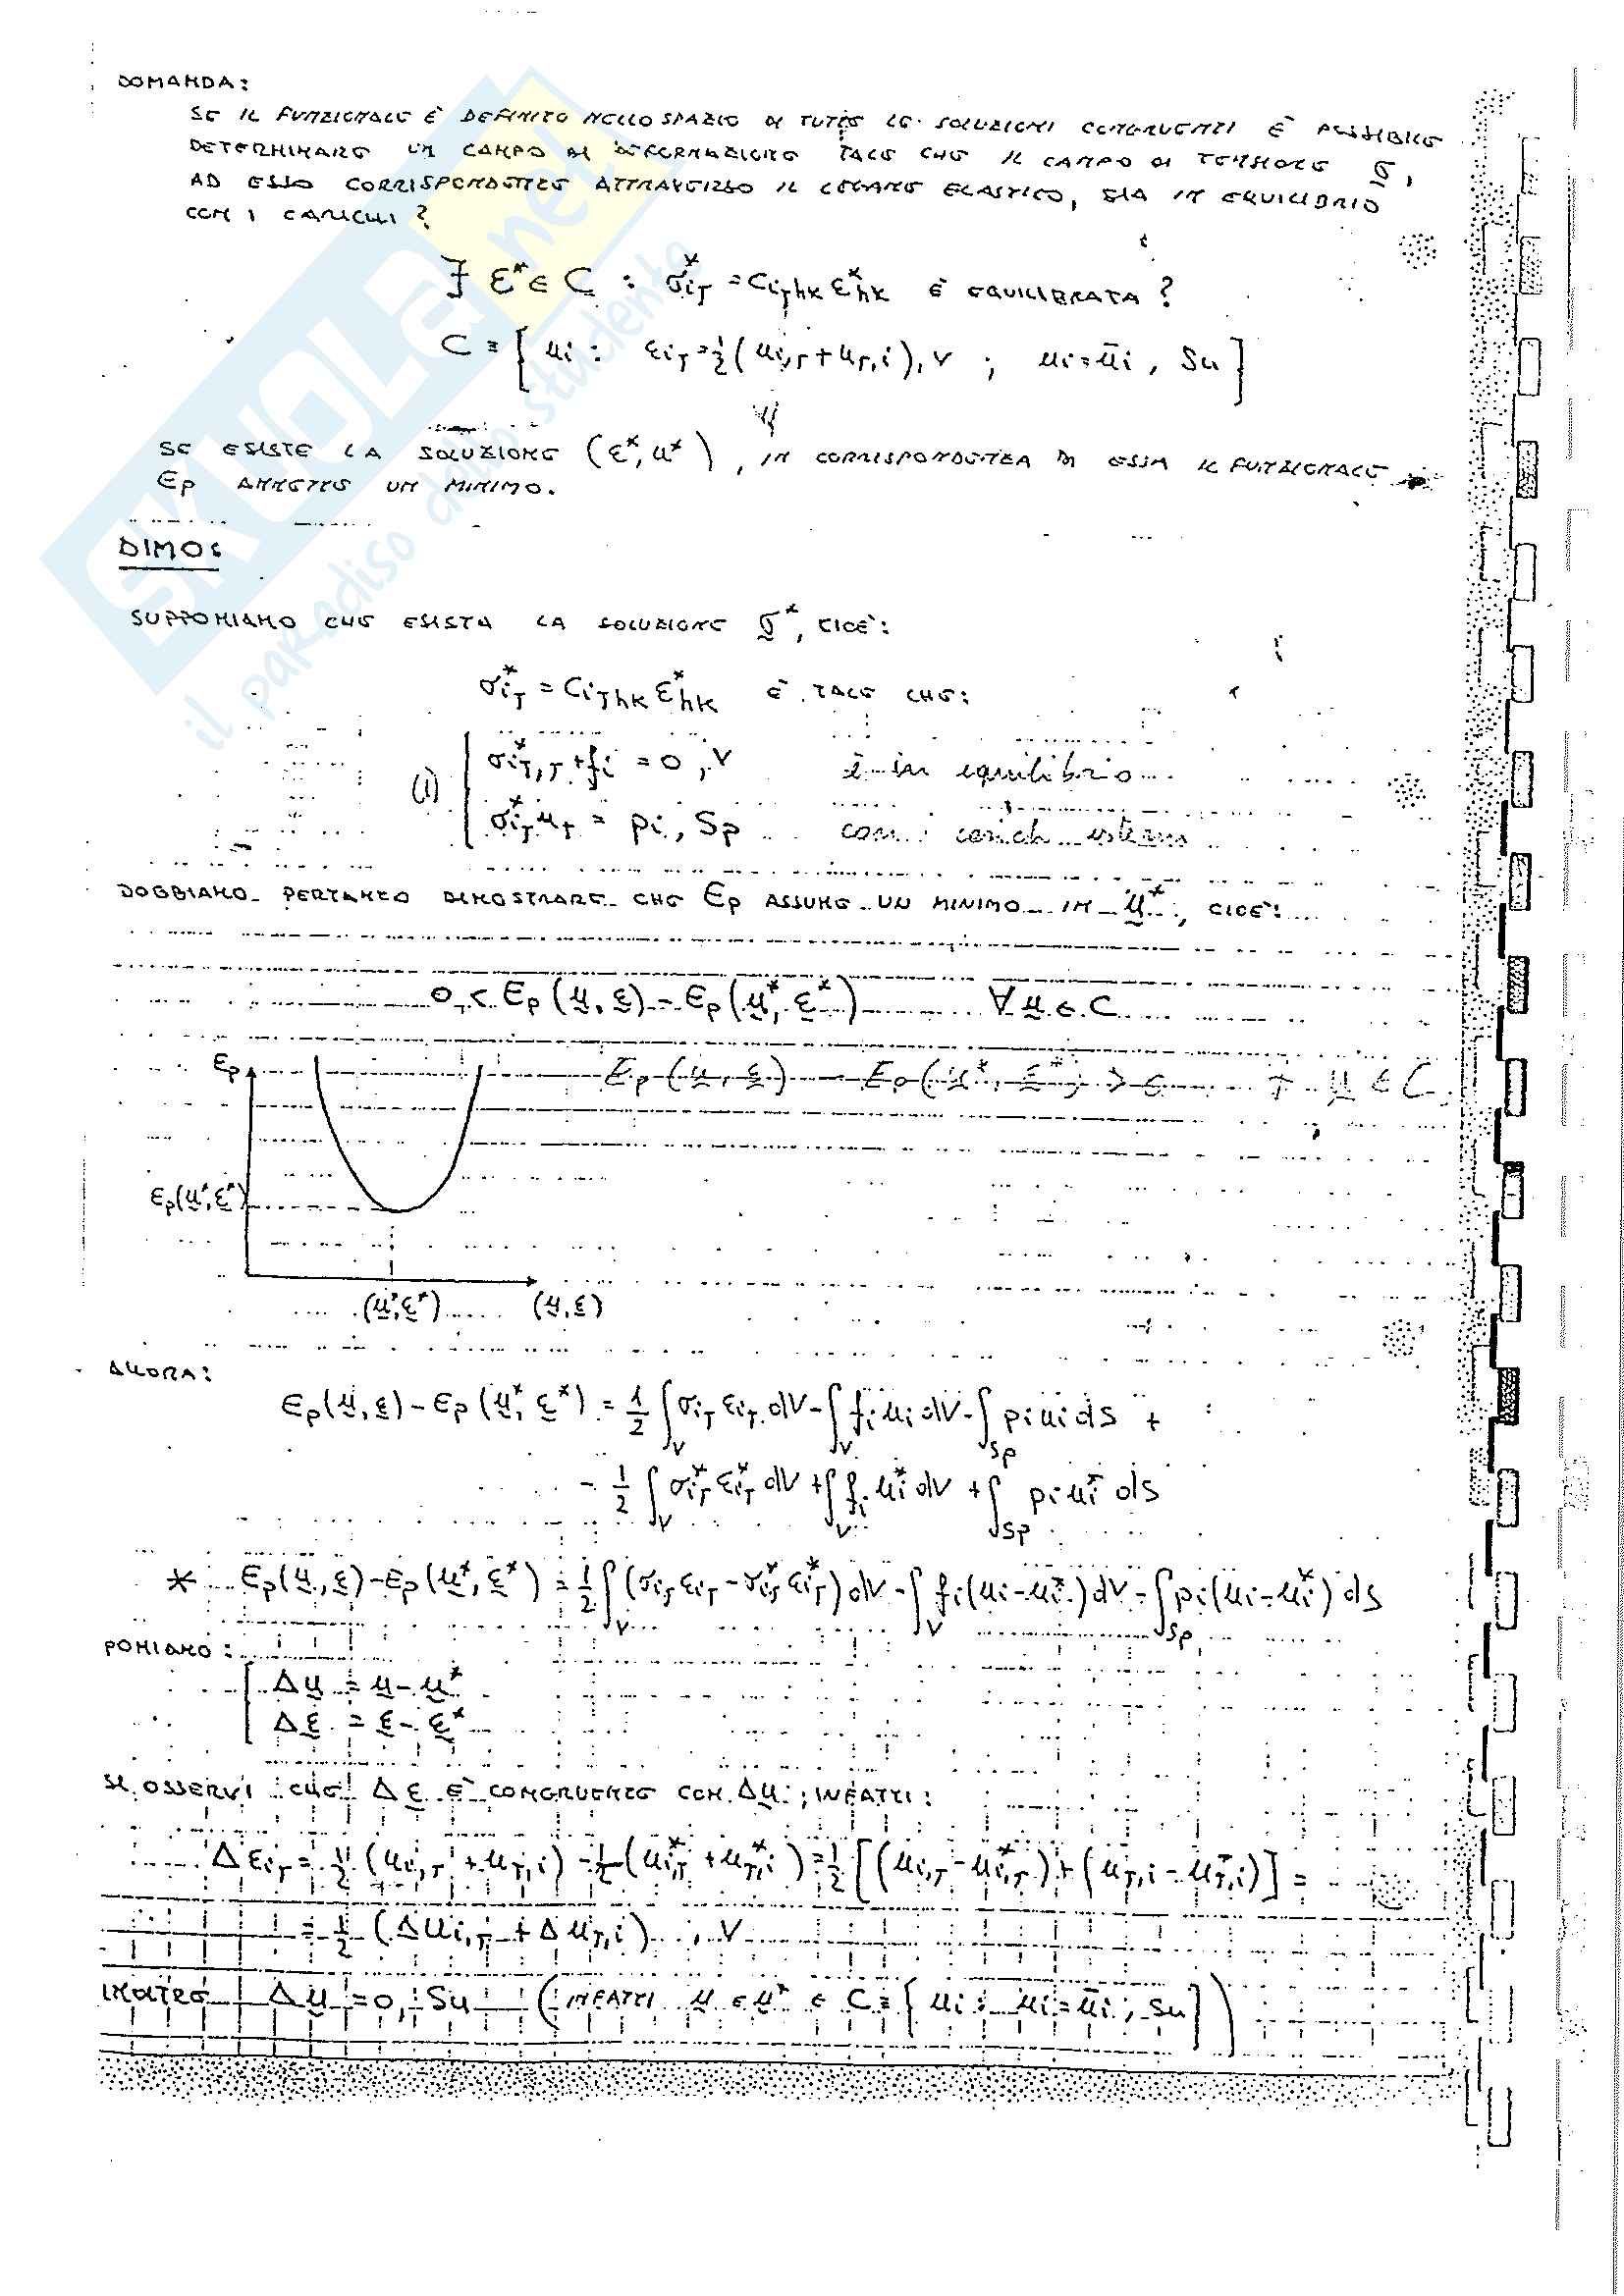 DOMANDA:
SE IL FUNZIONALE È DEFINITO NELLO SPAZIO DI TUTTE LE SOLUZIONI CONGRUENTI È POSSIBILE
DETERMINARE UN CAMPO DI DEFORMAZIONE TALE CHE IL CAMPO DI TENSIONE σ,
AD ESSO CORRISPONDENTE ATTRAVERSO IL LEGAME ELASTICO, SIA IN EQUILIBRIO
CON I CARICHI?
∃ ε* ∈ C : σ*iJ = CiJhk ε*hk È EQUILIBRATA?
C ≡ [ui : εiJ = 1/2 (ui,J + uJ,i), V ; ui = ūi, Su]
SE ESISTE LA SOLUZIONE (ε*, u*), IN CORRISPONDENZA DI ESSA IL FUNZIONALE
Ep AMMETTE UN MINIMO.
DIMO:
SUPPONIAMO CHE ESISTA LA SOLUZIONE σ*, CIOÈ:
σ*iJ = CiJhk ε*hk È TALE CHE:
(1) σ*iJ,J + fi = 0, V è in equilibrio
σ*iJ nJ = pi, Sp con i carichi esterni
DOBBIAMO PERTANTO DIMOSTRARE CHE Ep ASSUME UN MINIMO IN u*, CIOÈ:
0 < Ep(u, ε) - Ep(u*, ε*) ∀ u ∈ C
Ep(u, ε) - Ep(u*, ε*) > 0 ∀ u ∈ C
Ep
Ep(u*, ε*)
(u*, ε*) (u, ε)
ALLORA:
Ep(u, ε) - Ep(u*, ε*) = 1/2 ∫V σiJ εiJ dV - ∫V fi ui dV - ∫Sp pi ui ds +
- 1/2 ∫V σ*iJ ε*iJ dV + ∫V fi u*i dV + ∫Sp pi u*i ds
* Ep(u, ε) - Ep(u*, ε*) = 1/2 ∫V (σiJ εiJ - σ*iJ ε*iJ) dV - ∫V fi (ui - u*i) dV - ∫Sp pi (ui - u*i) ds
PONIAMO:
Δu = u - u*
Δε = ε - ε*
SI OSSERVI CHE Δε È CONGRUENTE CON Δu; INFATTI:
ΔεiJ = 1/2 (ui,J + uJ,i) - 1/2 (u*i,J + u*J,i) = 1/2 [(ui,J - u*i,J) + (uJ,i - u*J,i)] =
= 1/2 (Δui,J + ΔuJ,i), V
INOLTRE Δu = 0, Su (INFATTI u e u* ∈ C ≡ [ui : ui = ūi, Su])
SKUOLA.net
il paradiso dello studente